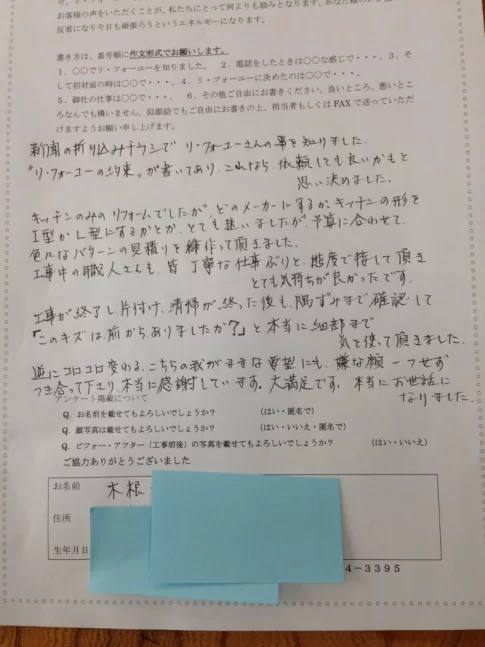 お客様の声をいただくことが、私たちにとって何よりも励みとなります。
反省になり今日も頑張ろうというエネルギーになります。
書き方は、番号順に作文形式でお願いします。
1．○○でリ・フォーユーを知りました。 2．電話をしたときは○○な感じで・・・、3．そ
して初対面の時は○○で・・・、4．リ・フォーユーに決めたのは○○で・・・、
5．御社の仕事は○○で・・・、 6．その他ご自由にお書きください。良いところ、悪いとこ
ろなんでも構いません。似顔絵でもご自由にお書きの上、担当者もしくは FAX で送っていただ
けますようお願い申し上げます。
新聞の折り込みチラシで リ・フォーユーさんの事を知りました。
"リ・フォーユーの約束"が書いてあり、これなら、依頼しても良いかもと
思い決めました。
キッチンのみのリフォームでしたが、どのメーカーにするか、キッチンの形を
I型かL型にするかとか、とても迷いましたが、予算に合わせて、
色々なパターンの見積りを練作って頂きました。
工事中の職人さんも、皆 丁寧な仕事ぶりと、態度で接して頂き
とても気持ちが良かったです。
工事が終了し、片付け、清掃が終った後も、隅ずみまで確認して
「このキズは前からありましたか?」と本当に細部まで
気を使って頂きました。
逆にコロコロ変わる、こちらの我がままな要望にも、嫌な顔一つせず
つき合って下さり、本当に感謝しています。大満足です。本当にお世話に
なりました。
アンケート掲載について
Q. お名前を載せてもよろしいでしょうか? （はい・匿名で）
Q. 顔写真は載せてもよろしいでしょうか? （はい・いいえ・匿名で）
Q. ビフォー・アフター（工事前後）の写真を載せてもよろしいでしょうか? （はい・いいえ）
ご協力ありがとうございました
お名前 木根
住所
生年月日
4-3395